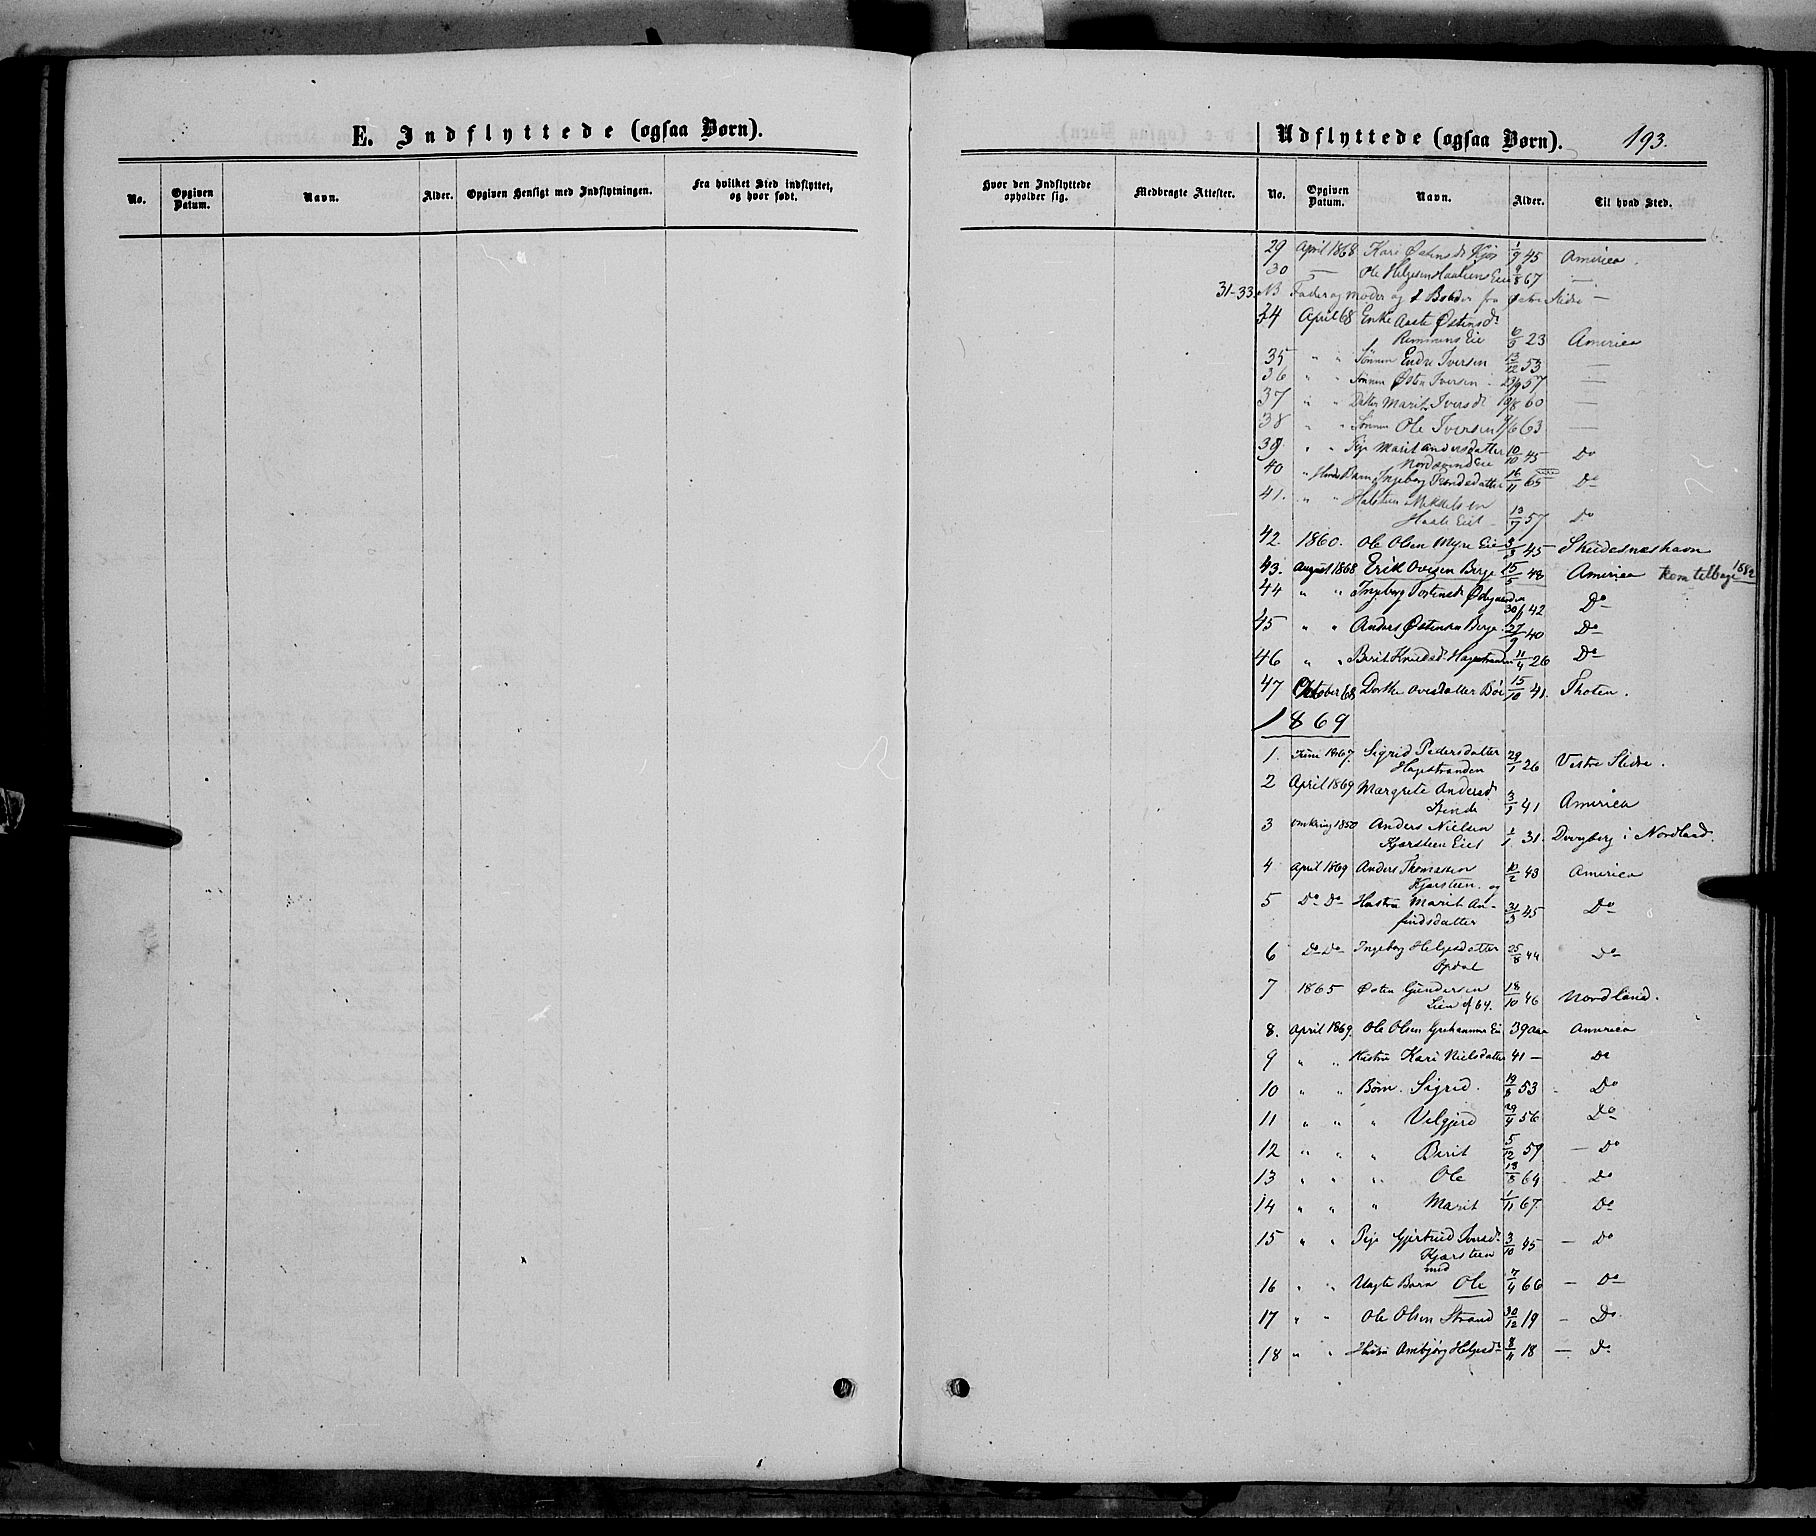 E. Indflyttede (ogsaa Børn).
No. Opgiven Datum. Navn. Alder. Opgiven Hensigt med Indflytningen. Fra hvilket Sted indflyttet, og hvor født.
Udflyttede (ogsaa Børn). 193.
Hvor den Indflyttede opholder sig. Medbragte Attester. No. Opgiven Datum. Navn. Alder. Til hvad Sted.
29 April 1868 Kari Østensd. 1/9 45 America.
30 — Ole Helgesen Eie 9/8 67 —
31-33 NB Fader og Moder og fra Slidre —
34 April 68 Enke Østensd:
Remmens Eie 6/5 23 America
35 " " Sønnen Endre Iversen 13/12 53 —
36 " " Sønnen Østen Iversen 57 —
37 " " Datter Marit Iversd: 19/8 60 —
38 " " Sønnen Ole Iversen 63 —
39. " " Pige Marit Andersdatter
Eie 10/10 45 Do
40 " Hendes Barn Ingeborg 16/11 65 Do
41. " " Halsteen Mikkelsen
Eiet 13/7 57 Do
42. 1860. Ole Olsen Myre Eie 45 Skudesneshavn
43. August 1868 Erik Ovesen Berge 15/5 48 America kom tilbage 1882
44 " " Ingeborg Tostensd: Ødegaarden
42 Do
45 " " Anders Østensen Berge 27/9 40 Do
46 " " Berit Knudsd: Hagestranden 11/4 26 Do
47 October 68 Dorthe Ovesdatter Bøe 15/10 41. Thoten.
1869
1. Juni 1867. Sigrid Pedersdatter
Hagestranden 29/1 26 Vestre Slidre.
2 April 1869 Margrete Andersd:
41 America
3 omkring 1850 Anders Nielsen
Kjørsteen Eiet 1/1 31. i Nordland.
4 April 1869 Anders Thomassen
Kjørsteen og 10/2 43 America
5 Do Do Hustru Marit An-
findsdatter 31/3 45 Do
6 Do Do Ingeborg Helgesdatter
Opdal 25/8 44 Do
7 1865 Østen Gundersen
Lien 64. 18/10 46 Nordland.
8. April 1869. Ole Olsen Eie 39 Aar America
9 " " Hustru Kari Nielsdatter 41 — Do
10 " " Børn. Sigrid. 19/3 53 Do
11 " " " Velgjerd 29/4 56 Do
12 " " " Berit 5/12 59 — Do
13 " " " Ole 64 Do
14 " " " Marit 1/11 67. Do
15 " " Pige Gjertrud
Kjørsteen 3/10 45 — Do
med
16 " " Uægte Barn Ole 7/4 66 — Do
17 " " Ole Olsen Strand 30/12 19 — Do
18 " " Hustru Ambjørg Helgesd: 8/11 18 — Do